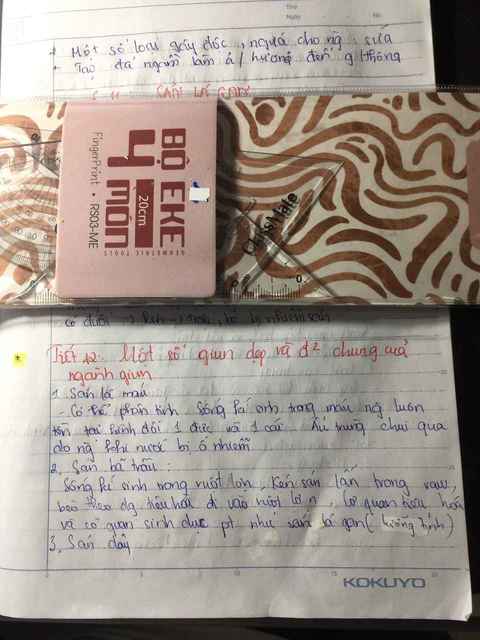 Thứ
Ngày No.
+ Một số loài gây độc, ngứa cho ng`, sứa
- Tảo đá ngầm làm a/hưởng đến g/thông
BỘ EKE
4 MÓN
20cm
GEOMETRIC TOOLS
FingerPrint • RS03-ME
ClassMate
có đuôi →
Tiết 12: Một số giun dẹp và đ² chung của
ngành giun
1. Sán lá máu
- Cơ thể phân tính. Sống kí sinh trong máu ng` luôn
tồn tại thành đôi 1 đực và 1 cái. Ấu trùng chui qua
da ng` khi nước bị ô nhiễm.
2. Sán bã trầu:
Sống kí sinh trong ruột lợn. Kén sán lẫn trong rau,
bèo theo đg tiêu hoá đi vào ruột lợn. Cơ quan tiêu hoá
và cơ quan sinh dục pt như sán lá gan (lưỡng tính)
3, Sán dây
KOKUYO